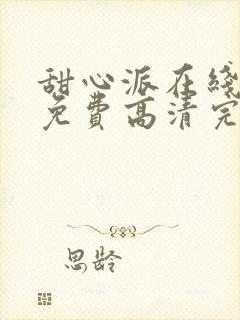 甜心派在线
免费高清完
思龄